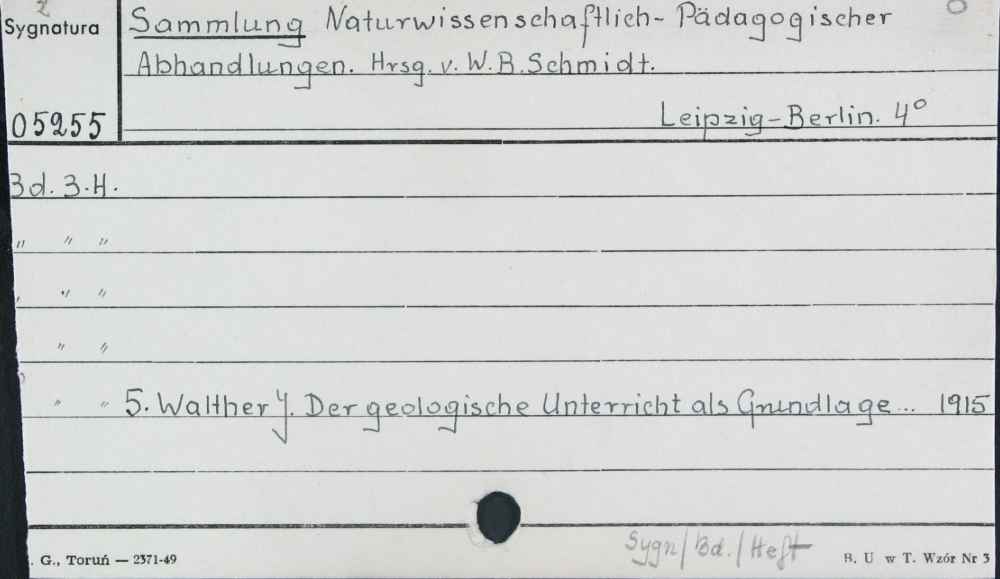 Sygnatura
Sammlung Naturwissenschaftlich- Pädagogischer
Abhandlungen. Hrsg. v. W.B.Schmidt.
05255
Leipzig-Berlin. 4°
Bd. 3.H.
" " "
" " "
" "
" " 5. Walther J. Der geologische Unterricht als Grundlage... 1915
Sygn/Bd./Heft
. G., Toruń — 2371-49
B. U w T. Wzór Nr 3